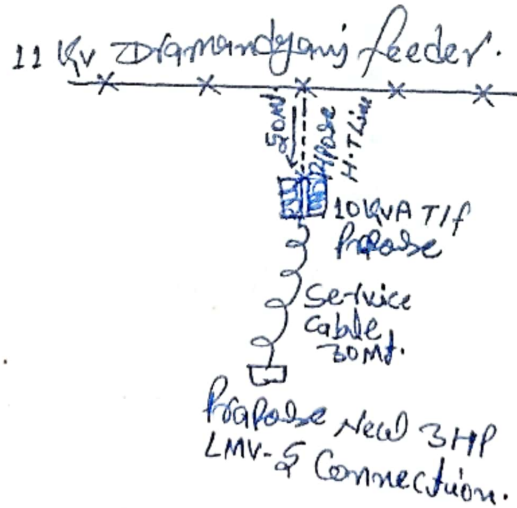 11 Kv feeder.
50Mt.
Prpose
H.T Line
10KvA T/f
Prapose
Service
Cable
30Mt.
Prapose New 3HP
LMV-5 Connection.